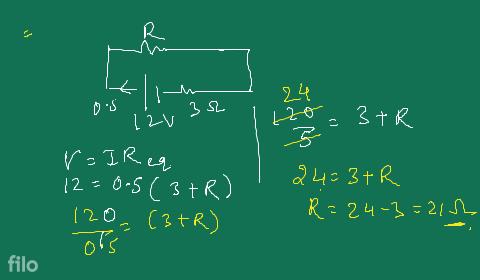 =
R
0.5
12V
3Ω
V = IR eq
12 = 0.5 (3+R)
120/05 = (3+R)
24
120/5 = 3+R
24 = 3+R
R = 24-3 = 21Ω
filo